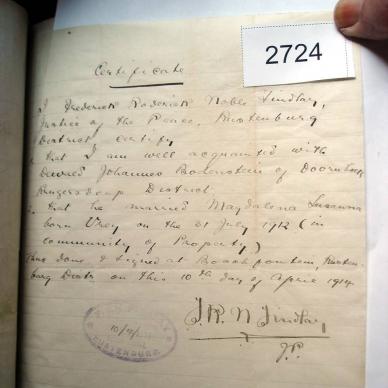 2724
Certificate
I Frederick Roderick Noble Findlay,
Justice of the Peace, Rustenburg
District certify
that I am well acquainted with
Johannes of Doornhoek
District.
that he married Magdalena Susanna
born on the 31 July 1912 (in
community of Property)
Thus done & signed at Boschfontein, Rusten-
burg Distr. on this 10th day of April 1914.
F. R. N Findlay
J.P.
RUSTENBURG